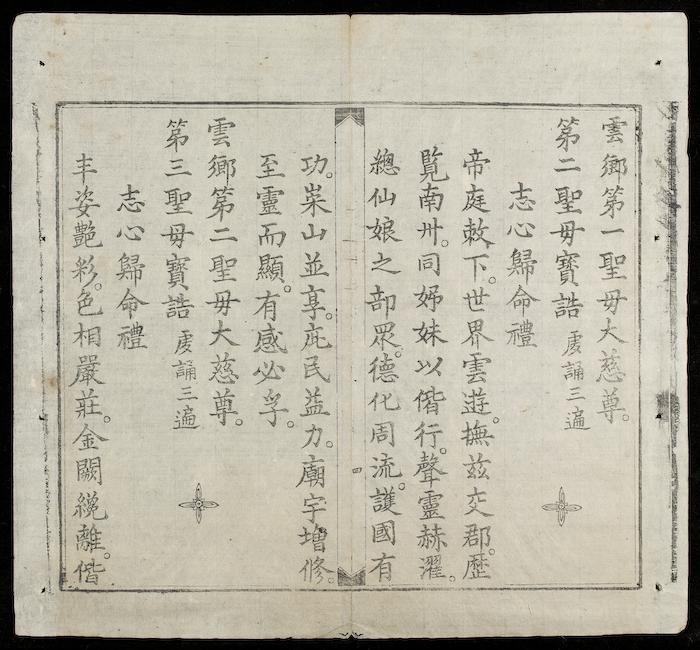 雲鄉第一聖母大慈尊。
第二聖母寶誥 虔誦三遍
志心歸命禮
帝庭敕下。世界雲遊。撫茲交郡。歷
覽南州。同姊妹以偕行。聲靈赫濯。
總仙娘之部眾。德化周流。護國有
四
功。崇山並享。庇民益力。廟宇增修。
至靈而顯。有感必孚。
雲鄉第二聖母大慈尊。
第三聖母寶誥 虔誦三遍
志心歸命禮
丰姿艷彩。色相嚴莊。金闕纔離。偕